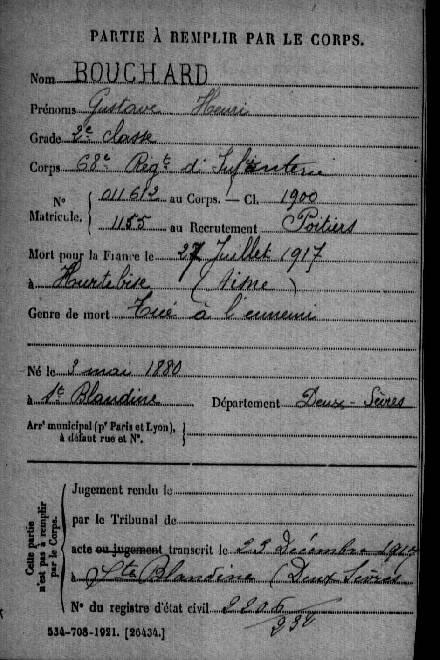 PARTIE À REMPLIR PAR LE CORPS.
Nom BOUCHARD
Prénoms Gustave Henri
Grade 2e classe
Corps 68e Regt d'Infanterie
No Matricule. 011612 au Corps. — Cl. 1900
1155 au Recrutement Poitiers
Mort pour la France le 27 Juillet 1917
à Hurtebise (Aisne)
Genre de mort Tué à l'ennemi
Né le 3 mai 1880
à Ste Blandine Département Deux-Sèvres
Arrt municipal (pr Paris et Lyon),
à défaut rue et No.
Cette partie n'est pas à remplir par le Corps.
Jugement rendu le
par le Tribunal de
acte ou jugement transcrit le 23 Décembre 1917
à Ste Blandine (Deux Sèvres
No du registre d'état civil 2206/
234
534-708-1921. [26434.]